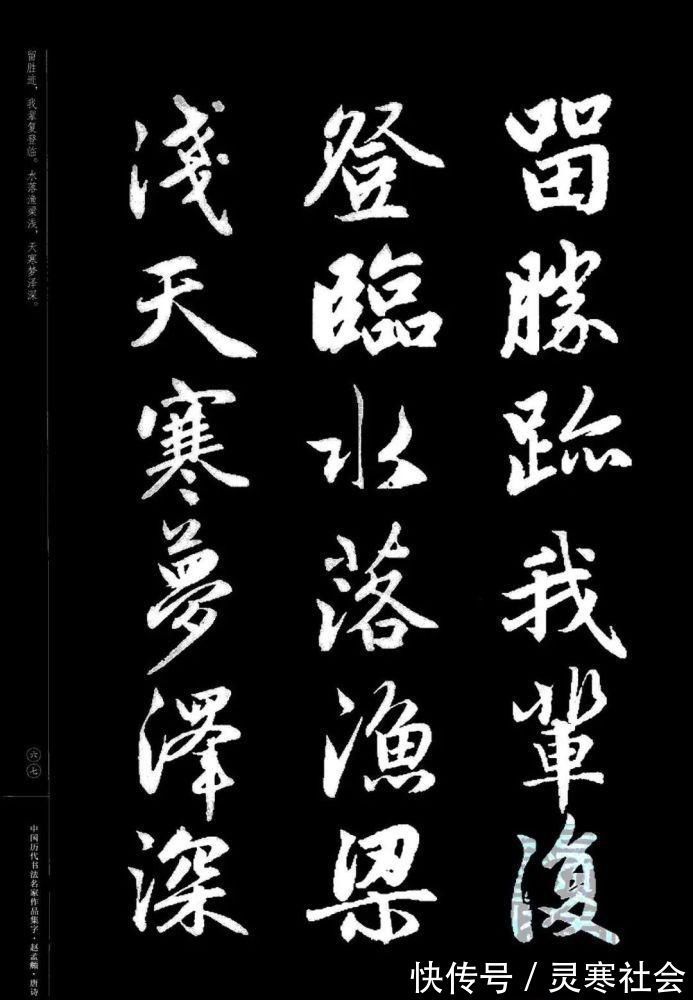 留勝跡我輩復
登臨水落漁梁
淺天寒夢澤深
留胜迹，我辈复登临。水落渔梁浅，天寒梦泽深。
六七
中国历代书法名家作品集字·赵孟頫·唐诗
快传号／灵寒社会